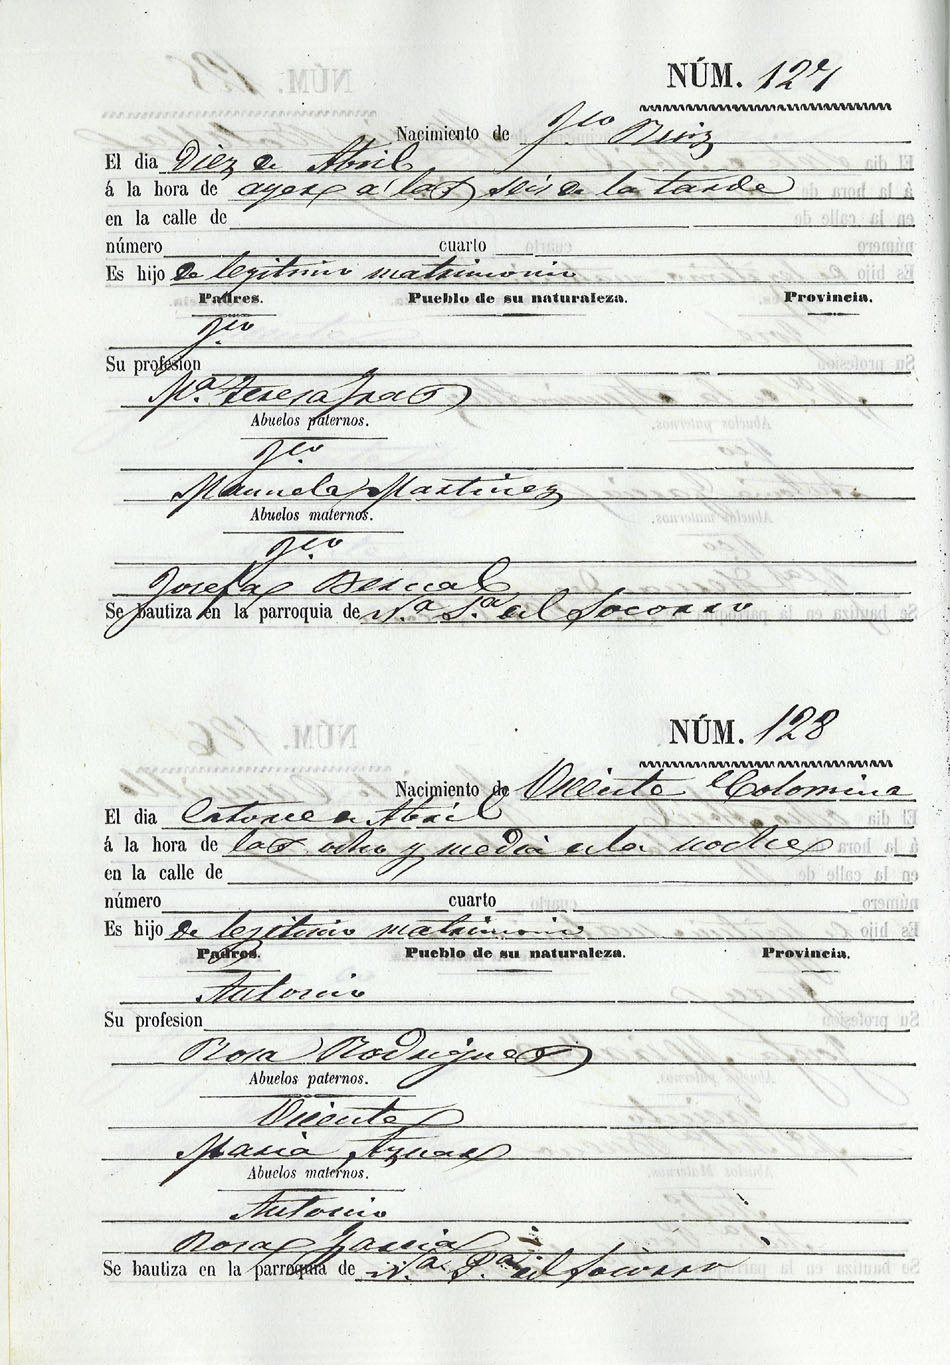 NÚM. 127
Nacimiento de Fco Ruiz
El dia Diez de Abril
á la hora de ayer a las seis de la tarde
en la calle de
número cuarto
Es hijo de legitimo matrimonio
Padres. Pueblo de su naturaleza. Provincia.
Fco
Su profesion
Mª Teresa
Abuelos paternos.
Fco
Manuela Martinez
Abuelos maternos.
Fco
Josefa Bernal
Se bautiza en la parroquia de Nª Sª del Socorro
NÚM. 128
Nacimiento de Vicente Colomina
El dia Catorce de Abril
á la hora de las ocho y media de la noche
en la calle de
número cuarto
Es hijo de legitimo matrimonio
Padres. Pueblo de su naturaleza. Provincia.
Antonio
Su profesion
Rosa Rodriguez
Abuelos paternos.
Vicente
Maria Aznar
Abuelos maternos.
Antonio
Rosa Garcia
Se bautiza en la parroquia de Nª Sª del Socorro